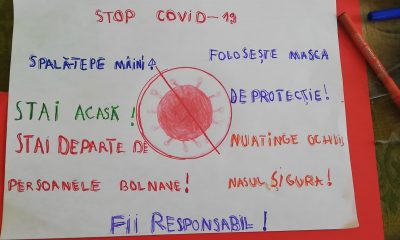 STOP COVID-19
SPALĂ-TEPE MÂINI
FOLOSEȘTE MASCA
DE PROTECȚIE!
STAI ACASĂ!
STAI DEPARTE DE
PERSOANELE BOLNAVE!
NU ATINGE OCHII,
NASUL ȘI GURA!
FII RESPONSABIL!